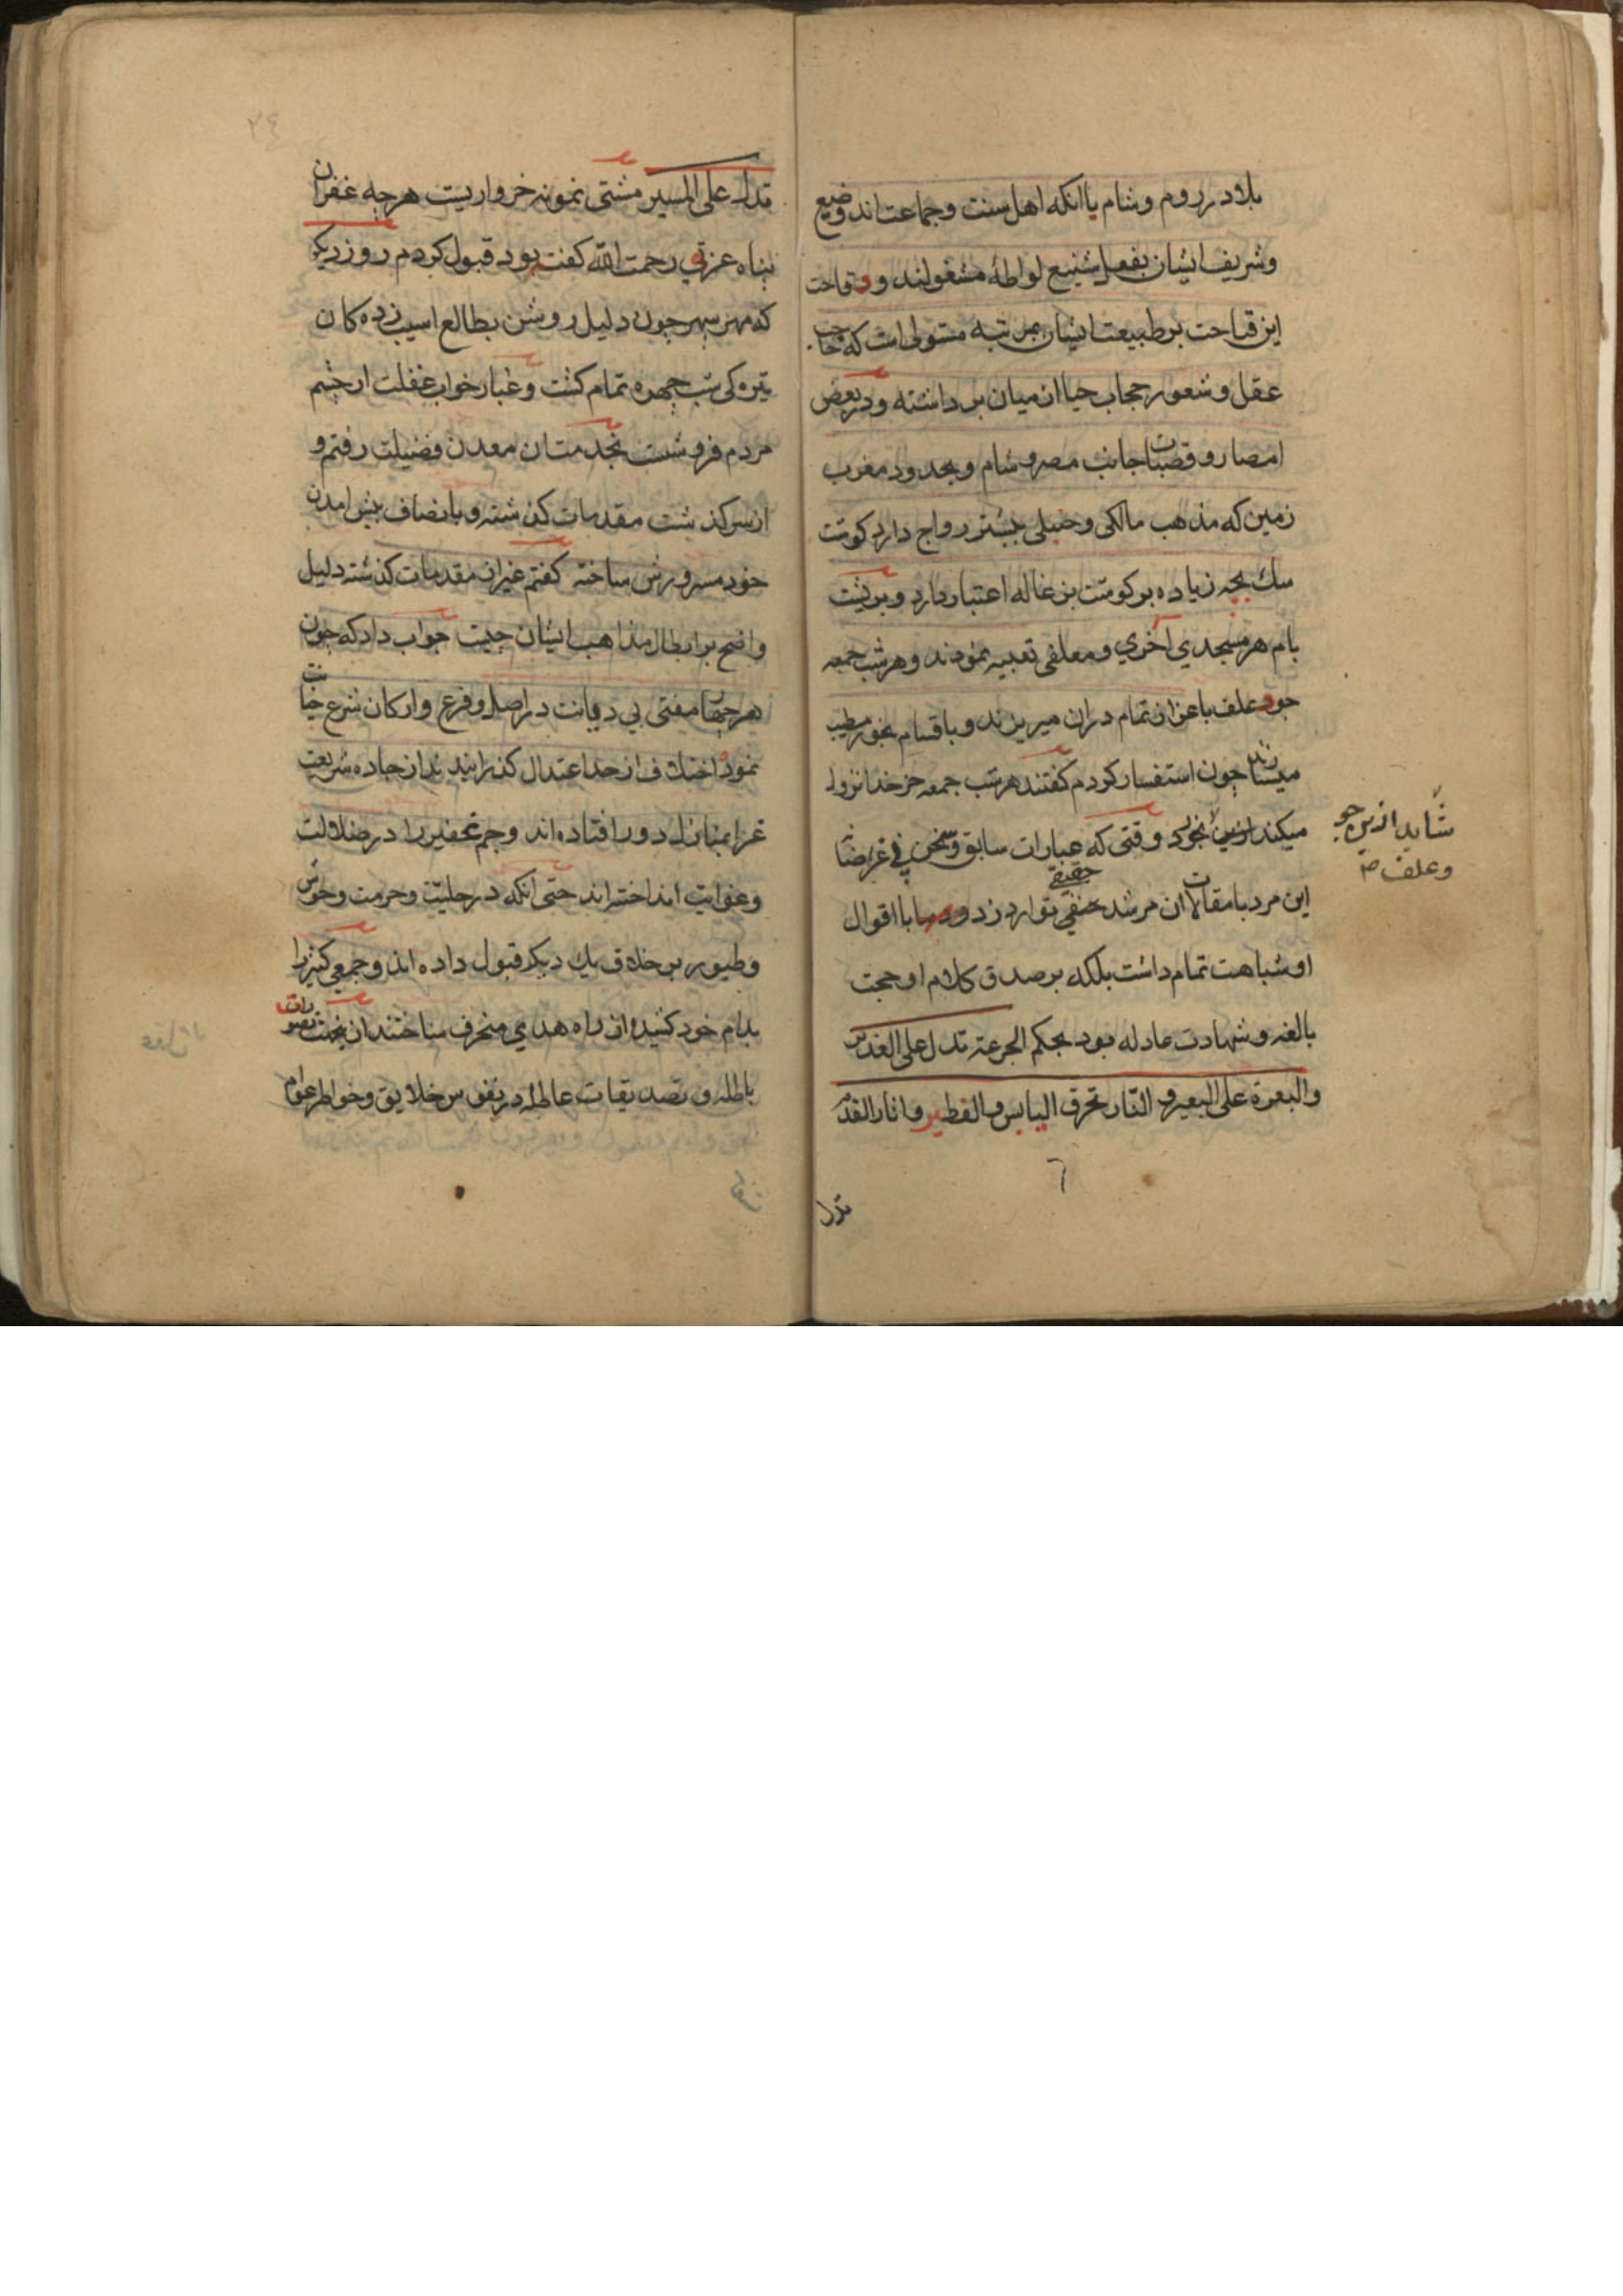 بلاد در روم وشام با انکه اهل سنت وجماعت اند وضیع
وشریف ایشان بفعل شنیع لواطه مشغولند و وقاحت
این قباحت بر طبیعت ایشان بمرتبه مستولی است که حاجب
عقل وشعور حجاب حیا از میان برداشته ودر بعض
امصار و قصبات جانب مصر و شام وبحدود مغرب
زمین که مذهب مالکی و حنبلی بیشتر رواج دارد کوشت
سک بچه زیاده بر کوشت بزغاله اعتبار دارد و بر پشت
بام هر مسجدی آخوری ومعلفی تعبیه نمودند وهر شب جمعه
جو وعلف باعزاز تمام دران میریزند وباقسام بخور مطیب
میسازند چون استفسار کردم کفتند هر شب جمعه خر خدا نزول
میکند ازین بخورد وقتی که عبارات سابق وسخن
شاید ازین جو
وعلف
این مرد با مقالات ان مرشد حقیقی توارد زد و با اقوال
حقیقی
او شباهت تمام داشت بلکه بر صدق کلام او حجت
بالغه و شهادت عادله بود بحکم الجرعة تدل علی الغدیر
والبعرة علی البعیر و النار تحرق الیابس والفطیر واثار القدم
تدل
٢٤
تدل علی المسیر مشتی نمونه خرواریست هرچه غفران
پناه عزتی رحمت الله کفته بود قبول کردم روز دیکر
که مهر سپهر چون دلیل روشن بطالع اسیب زده کان
تیره کی شب چهره تمام کشت و غبار خواب غفلت از چشم
مردم فرو شست بخدمت ان معدن فضیلت رفتم و
از سر کذشت مقدمات کذشته و بانصاف پیش امدن
خود مسرورش ساخته کفتم غیر از مقدمات کذشته دلیل
واضح بر ابطال مذاهب ایشان چیست جواب داد که چون
هر چهار مفتی بی دیانت در اصل و فرع وارکان شرع خیانت
نموده اختلاف از حد اعتدال کذرانیدند از جاده شریعت
غرا بمنازل دور افتاده اند وجم غفیر را در ضلالت
وغوایت انداخته اند حتی انکه در حلیت وحرمت وحوش
وطیور بر خلاف یک دیکر قبول داده اند وجمعی کثیر را
بدام خود کشیده از راه هدی منحرف ساختند از بخث تصورات
باطله و تصدیقات عاطله در نفوس خلایق وخواطر عوام